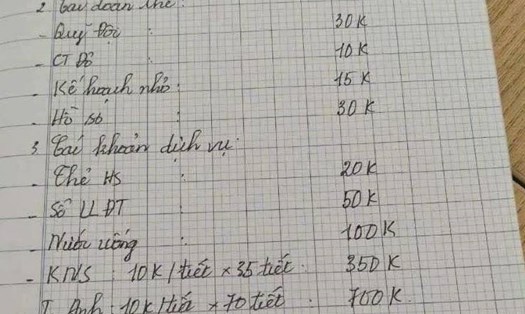 2 Các đoàn thể:
- Quỹ Đội : 30K
- CT Đỏ : 10K
- Kế hoạch nhỏ: 15K
- Hồ sơ : 30K
3. Các khoản dịch vụ:
- Thẻ HS : 20K
- Sổ LLĐT : 50K
- Nước uống : 100K
- KNS : 10K/tiết × 35 tiết : 350K
T. Anh : 10K/tiết × 70 tiết : 700K